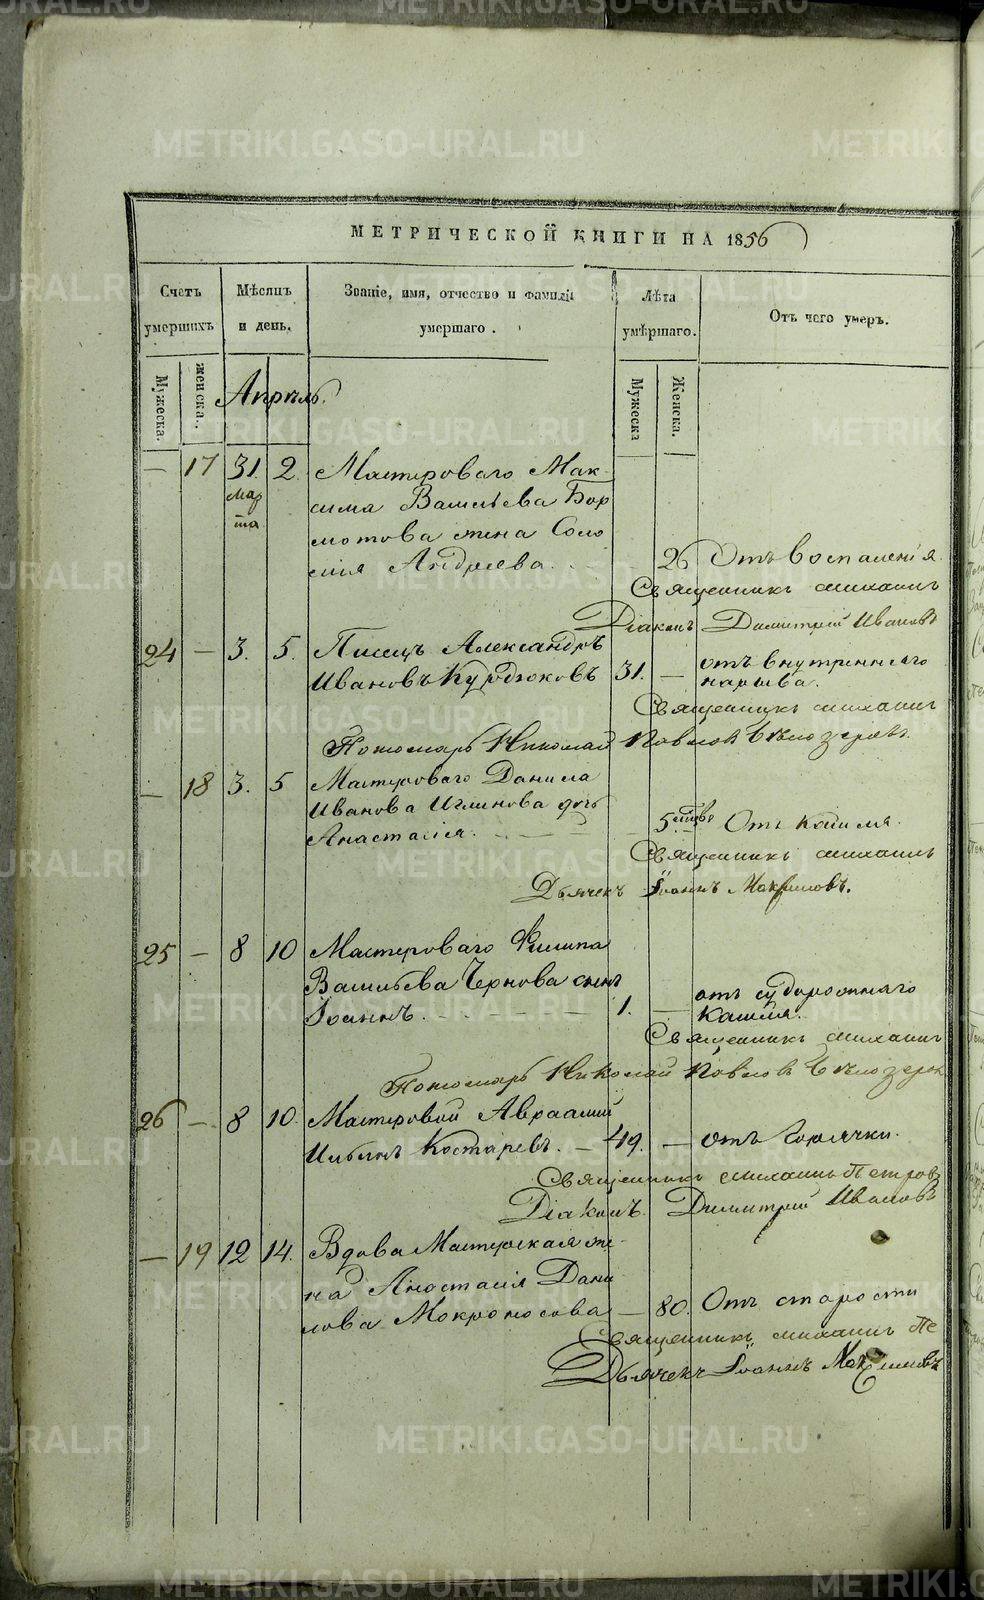 МЕТРИЧЕСКОЙ КНИГИ НА 1856
Счетъ умершихъ
Мѣсяцъ и день.
Званіе, имя, отчество и фамилія умершаго.
Лѣта умѣршаго.
Отъ чего умеръ.
Мужеска.
женска.
Мужеска
Женска.
Апрѣль.
— 17 31. 2. Мастероваго Мак-
Мар сима Васильева Бор
та мотова жена Соло
мія Андреева. 26 Отъ воспаленія.
Священникъ Михаилъ
Діаконъ Димитрій Ивановъ
24 — 3. 5. Писецъ Александръ
Ивановъ Курдюковъ 31. — отъ внутренняго
нарыва.
Священникъ Михаилъ
Пономарь Николай Павловъ Бѣлозеровъ
— 18 3. 5 Мастероваго Данила
Иванова Иглинова дочь
Анастасія. 5 Отъ кашля.
Священникъ Михаилъ
Дьячекъ Іоаннъ
25 — 8 10 Мастероваго Филипа
Васильева Чернова сынъ
Іоаннъ. 1. — отъ судорожнаго
кашля.
Священникъ Михаилъ
Пономарь Николай Павловъ
26 — 8 10. Мастеровой Авраамій
Ильинъ Костаревъ. — 49. — отъ горячки.
Священникъ Михаилъ Петров
Діаконъ Димитрій Ивановъ
— 19 12 14. Вдова Мастерская же-
на Анастасія Дани
лова Мокроносова — 80. Отъ старости
Священникъ Михаилъ Пе
Дьячекъ Іоаннъ
METRIKI.GASO-URAL.RU